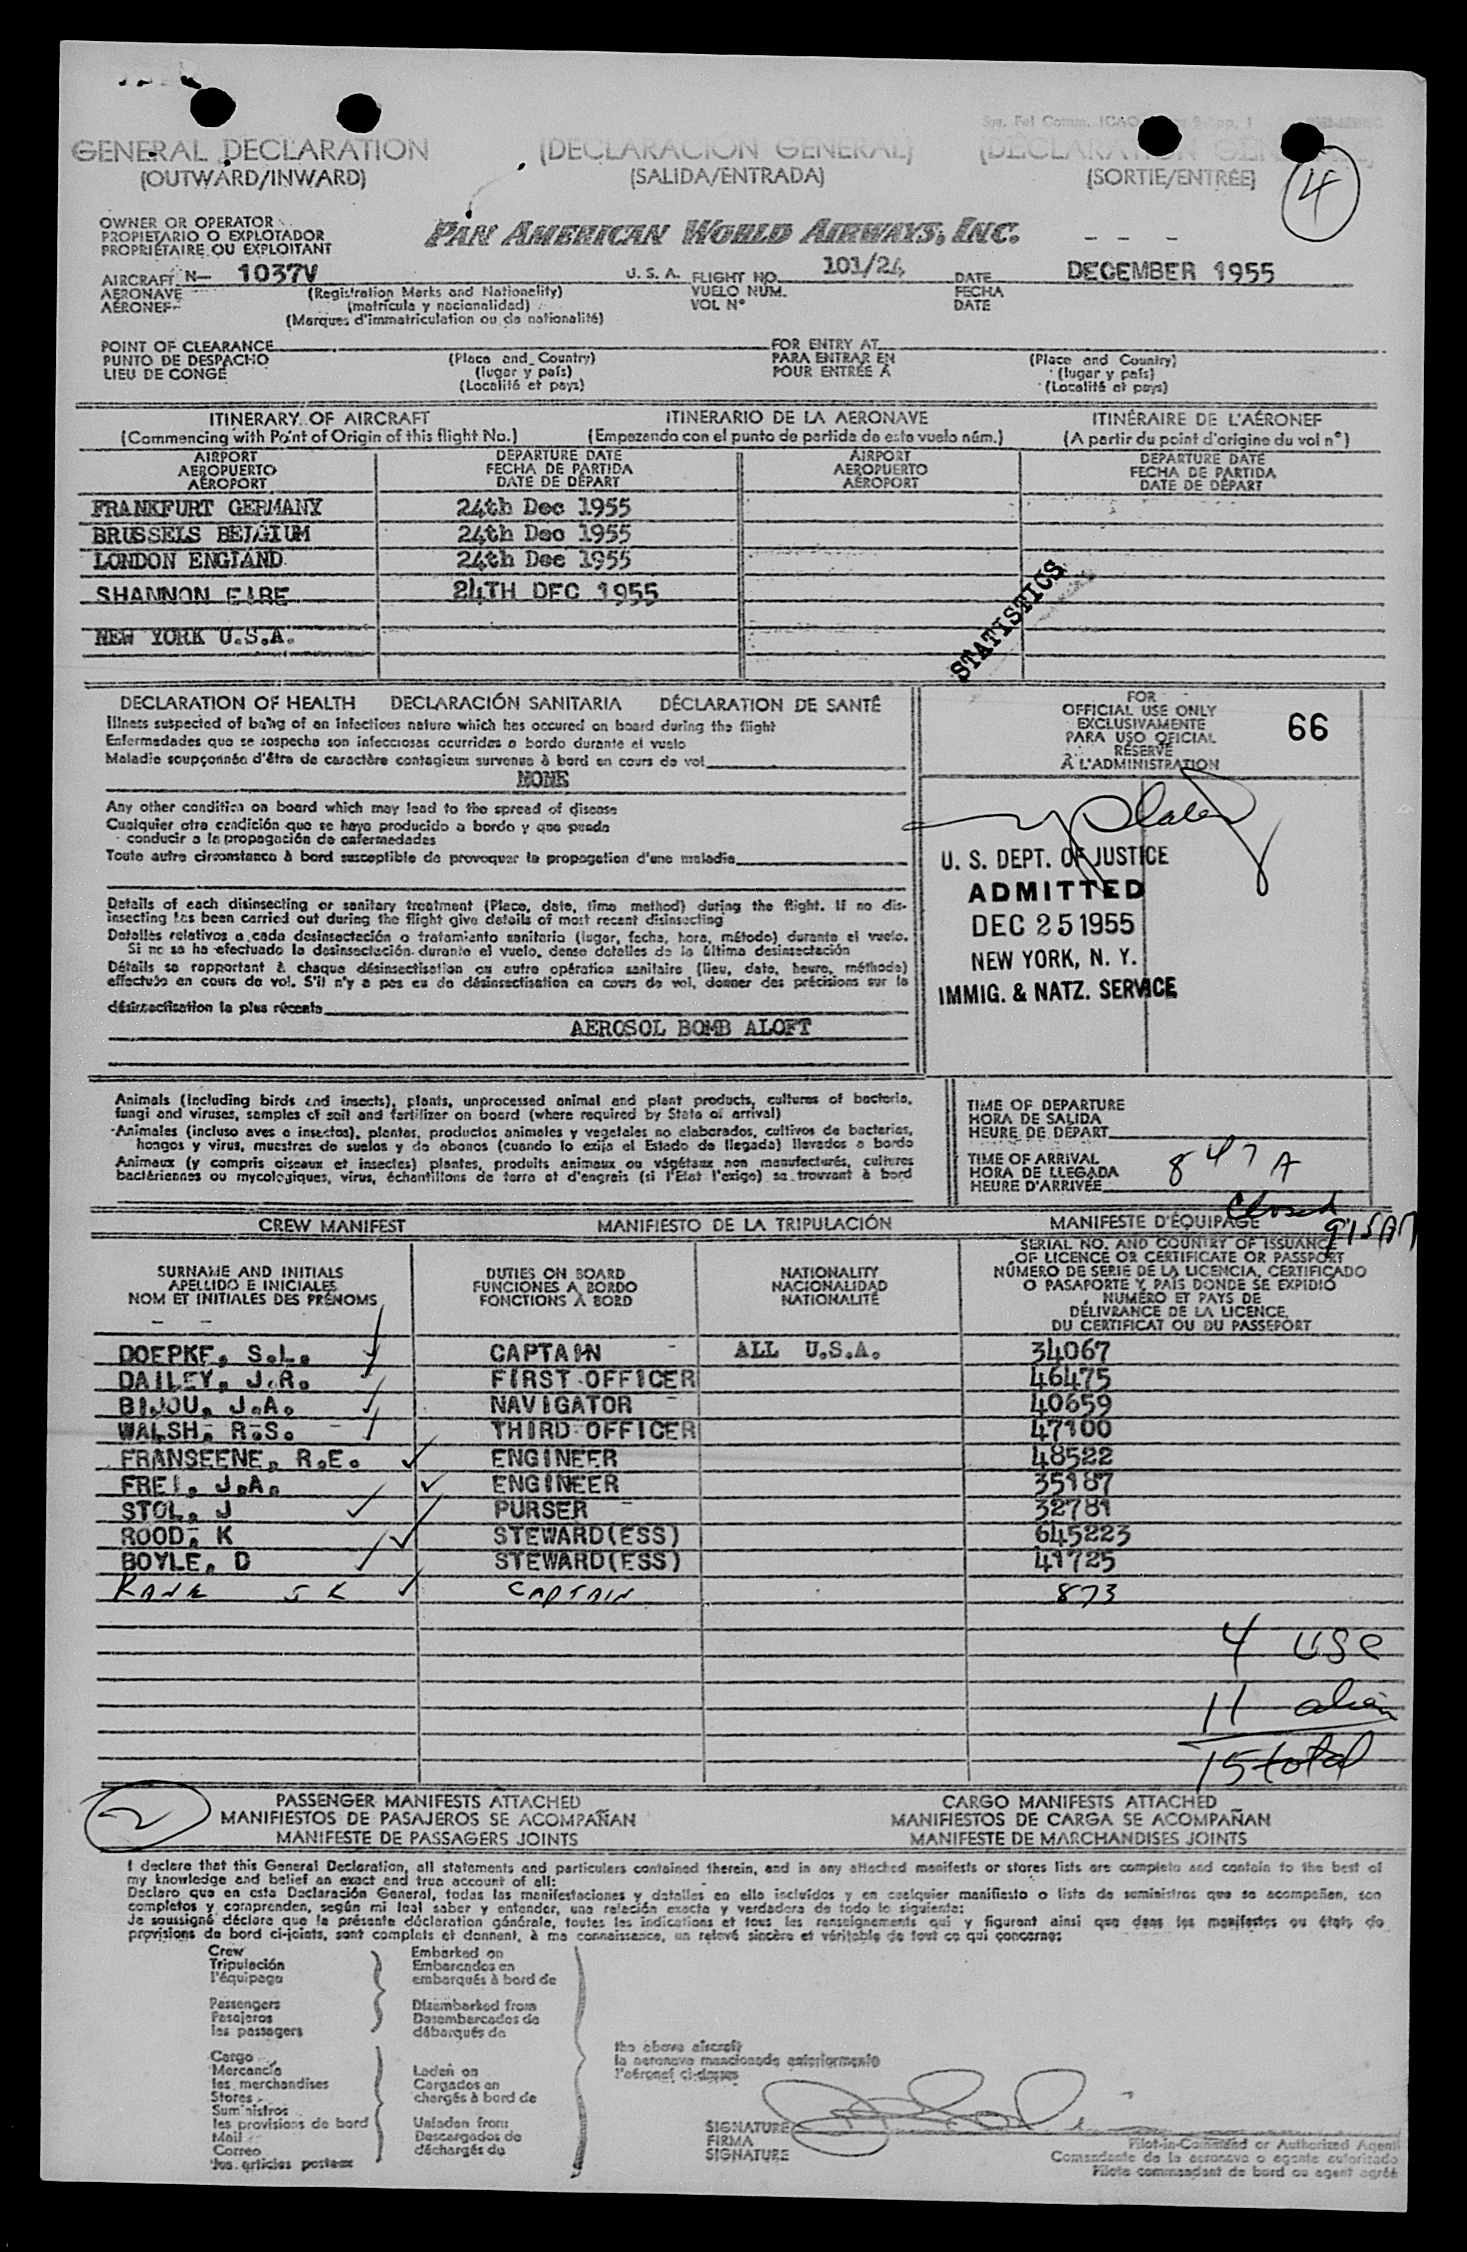 GENERAL DECLARATION (DECLARACIÓN GENERAL)
(OUTWARD/INWARD) (SALIDA/ENTRADA) (SORTIE/ENTRÉE) 4
OWNER OR OPERATOR
PROPIETARIO O EXPLOTADOR
PROPRIÉTAIRE OU EXPLOITANT
PAN AMERICAN WORLD AIRWAYS, INC.
AIRCRAFT N— 1037V U. S. A. FLIGHT NO. 101/24 DATE DECEMBER 1955
AERONAVE (Registration Marks and Nationality) VUELO NÚM. FECHA
AÉRONEF (matrícula y nacionalidad) VOL N° DATE
(Marques d'immatriculation ou de nationalité)
POINT OF CLEARANCE FOR ENTRY AT
PUNTO DE DESPACHO (Place and Country) PARA ENTRAR EN (Place and Country)
LIEU DE CONGÉ (lugar y país) POUR ENTRÉE À (lugar y país)
(Localité et pays) (Localité et pays)
ITINERARY OF AIRCRAFT ITINERARIO DE LA AERONAVE ITINÉRAIRE DE L'AÉRONEF
(Commencing with Point of Origin of this flight No.) (Empezando con el punto de partida de este vuelo núm.) (A partir du point d'origine du vol n°)
AIRPORT DEPARTURE DATE AIRPORT DEPARTURE DATE
AEROPUERTO FECHA DE PARTIDA AEROPUERTO FECHA DE PARTIDA
AÉROPORT DATE DE DÉPART AÉROPORT DATE DE DÉPART
FRANKFURT GERMANY 24th Dec 1955
BRUSSELS BELGIUM 24th Dec 1955
LONDON ENGLAND 24th Dec 1955
SHANNON EIRE 24TH DEC 1955
NEW YORK U.S.A.
STATISTICS
DECLARATION OF HEALTH DECLARACIÓN SANITARIA DÉCLARATION DE SANTÉ
Illness suspected of being of an infectious nature which has occured on board during the flight
Enfermedades que se sospecha son infecciosas ocurridas a bordo durante el vuelo
Maladie soupçonnée d'être de caractère contagieux survenue à bord en cours de vol
NONE
Any other condition on board which may lead to the spread of disease
Cualquier otra condición que se haya producido a bordo y que pueda
conducir a la propagación de enfermedades
Toute autre circonstance à bord susceptible de provoquer la propagation d'une maladie
Details of each disinsecting or sanitary treatment (Place, date, time method) during the flight. If no dis-
insecting has been carried out during the flight give details of most recent disinsecting
Detalles relativos a cada desinsectación o tratamiento sanitario (lugar, fecha, hora, método) durante el vuelo.
Si no se ha efectuado la desinsectación durante el vuelo, dense detalles de la última desinsectación
Détails se rapportant à chaque désinsectisation ou autre opération sanitaire (lieu, date, heure, méthode)
effectuée en cours de vol. S'il n'y a pas eu de désinsectisation en cours de vol, donner des précisions sur la
désinsectisation la plus récente
AEROSOL BOMB ALOFT
FOR
OFFICIAL USE ONLY
EXCLUSIVAMENTE
PARA USO OFICIAL
RÉSERVÉ
À L'ADMINISTRATION
66
U. S. DEPT. OF JUSTICE
ADMITTED
DEC 25 1955
NEW YORK, N. Y.
IMMIG. & NATZ. SERVICE
Animals (including birds and insects), plants, unprocessed animal and plant products, cultures of bacteria,
fungi and viruses, samples of soil and fertilizer on board (where required by State of arrival)
Animales (incluso aves e insectos), plantas, productos animales y vegetales no elaborados, cultivos de bacterias,
hongos y virus, muestras de suelos y de abonos (cuando lo exija el Estado de llegada) llevados a bordo
Animaux (y compris oiseaux et insectes) plantes, produits animaux ou végétaux non manufacturés, cultures
bactériennes ou mycologiques, virus, échantillons de terre et d'engrais (si l'État l'exige) se trouvant à bord
TIME OF DEPARTURE
HORA DE SALIDA
HEURE DE DÉPART
TIME OF ARRIVAL
HORA DE LLEGADA 847 A
HEURE D'ARRIVÉE
Closed
915AM
CREW MANIFEST MANIFIESTO DE LA TRIPULACIÓN MANIFESTE D'ÉQUIPAGE
SURNAME AND INITIALS
APELLIDO E INICIALES
NOM ET INITIALES DES PRÉNOMS
DUTIES ON BOARD
FUNCIONES A BORDO
FONCTIONS À BORD
NATIONALITY
NACIONALIDAD
NATIONALITÉ
SERIAL NO. AND COUNTRY OF ISSUANCE
OF LICENCE OR CERTIFICATE OR PASSPORT
NÚMERO DE SERIE DE LA LICENCIA, CERTIFICADO
O PASAPORTE Y PAÍS DONDE SE EXPIDIÓ
NUMÉRO ET PAYS DE
DÉLIVRANCE DE LA LICENCE,
DU CERTIFICAT OU DU PASSEPORT
DOEPKE, S.L. CAPTAIN ALL U.S.A. 34067
DAILEY, J.R. FIRST OFFICER 46475
BIJOU, J.A. NAVIGATOR 40659
WALSH, R.S. THIRD OFFICER 47100
FRANSEENE, R.E. ENGINEER 48522
FREI, J.A. ENGINEER 35187
STOL, J PURSER 32781
ROOD, K STEWARD(ESS) 645223
BOYLE, D STEWARD(ESS) 41725
KANE J K CAPTAIN 873
4 USC
11 alien
15 total
2
PASSENGER MANIFESTS ATTACHED CARGO MANIFESTS ATTACHED
MANIFIESTOS DE PASAJEROS SE ACOMPAÑAN MANIFIESTOS DE CARGA SE ACOMPAÑAN
MANIFESTE DE PASSAGERS JOINTS MANIFESTE DE MARCHANDISES JOINTS
I declare that this General Declaration, all statements and particulars contained therein, and in any attached manifests or stores lists are complete and contain to the best of
my knowledge and belief an exact and true account of all:
Declaro que en esta Declaración General, todas las manifestaciones y detalles en ella incluídos y en cualquier manifiesto o lista de suministros que se acompañen, son
completos y comprenden, según mi leal saber y entender, una relación exacta y verdadera de todo lo siguiente:
Je soussigné déclare que la présente déclaration générale, toutes les indications et tous les renseignements qui y figurent ainsi que dans les manifestes ou états de
provisions de bord ci-joints, sont complets et donnent, à ma connaissance, un relevé sincère et véritable de tout ce qui concerne:
Crew Embarked on
Tripulación Embarcados en
l'équipage embarqués à bord de
Passengers Disembarked from
Pasajeros Desembarcados de
les passagers débarqués de
the above aircraft
la aeronave mencionada anteriormente
l'aéronef ci-dessus
Cargo
Mercancía Laden on
les merchandises Cargados en
Stores chargés à bord de
Suministros
les provisions de bord Unladen from
Mail Descargados de
Correo déchargés du
les articles postaux
SIGNATURE
FIRMA
SIGNATURE
Pilot-in-Command or Authorized Agent
Comandante de la aeronave o agente autorizado
Pilote commandant de bord ou agent agréé